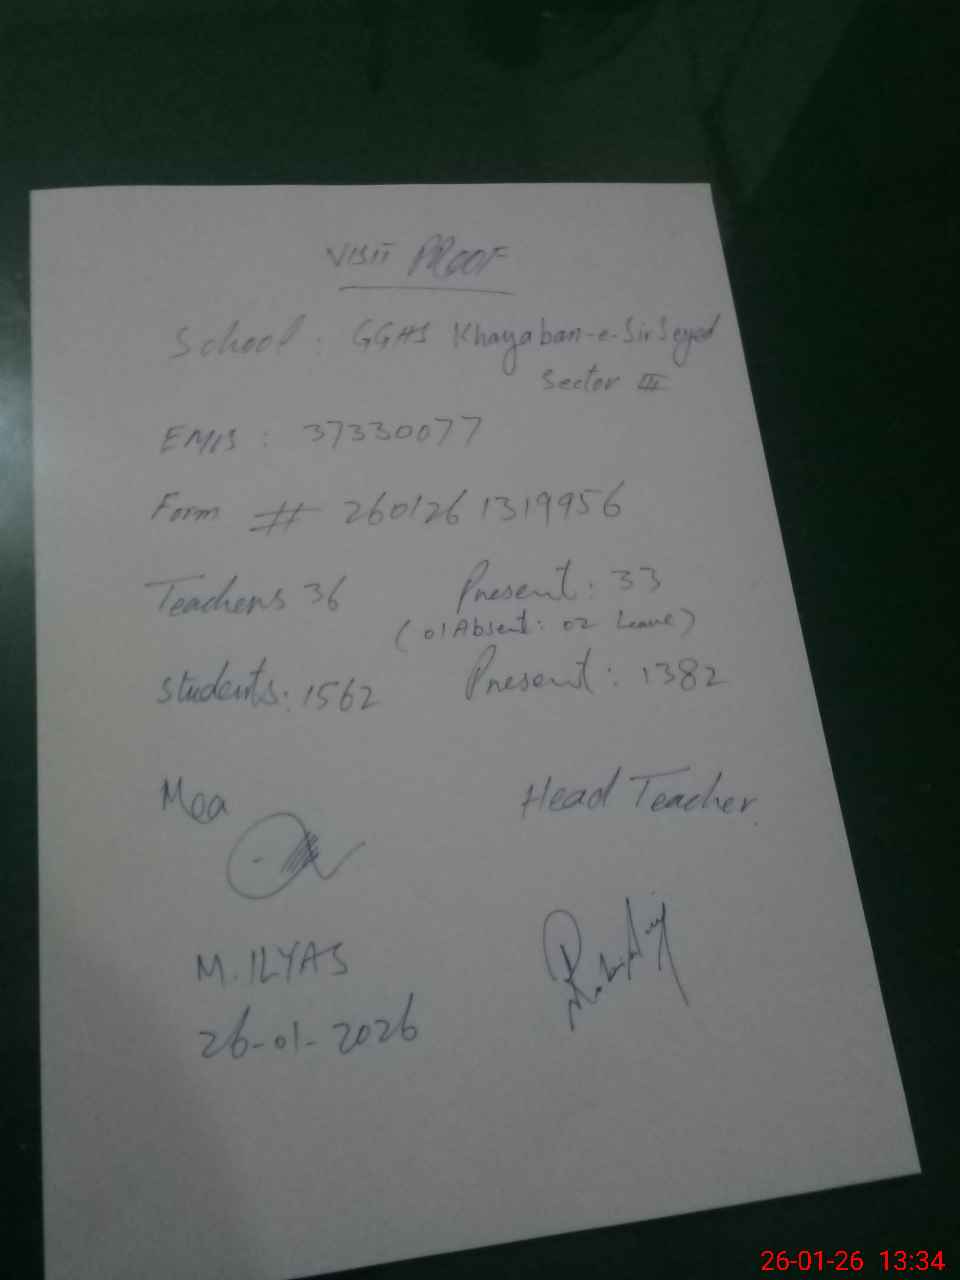 VISIT PROOF
School : GGHS Khayaban-e-Sir Seyed
Sector III
EMIS : 37330077
Form # 260126 1319956
Teachers 36 Present : 33
(01 Absent : 02 Leave)
Students : 1562 Present : 1382
Mea Head Teacher.
M. ILYAS
26-01-2026
26-01-26 13:34